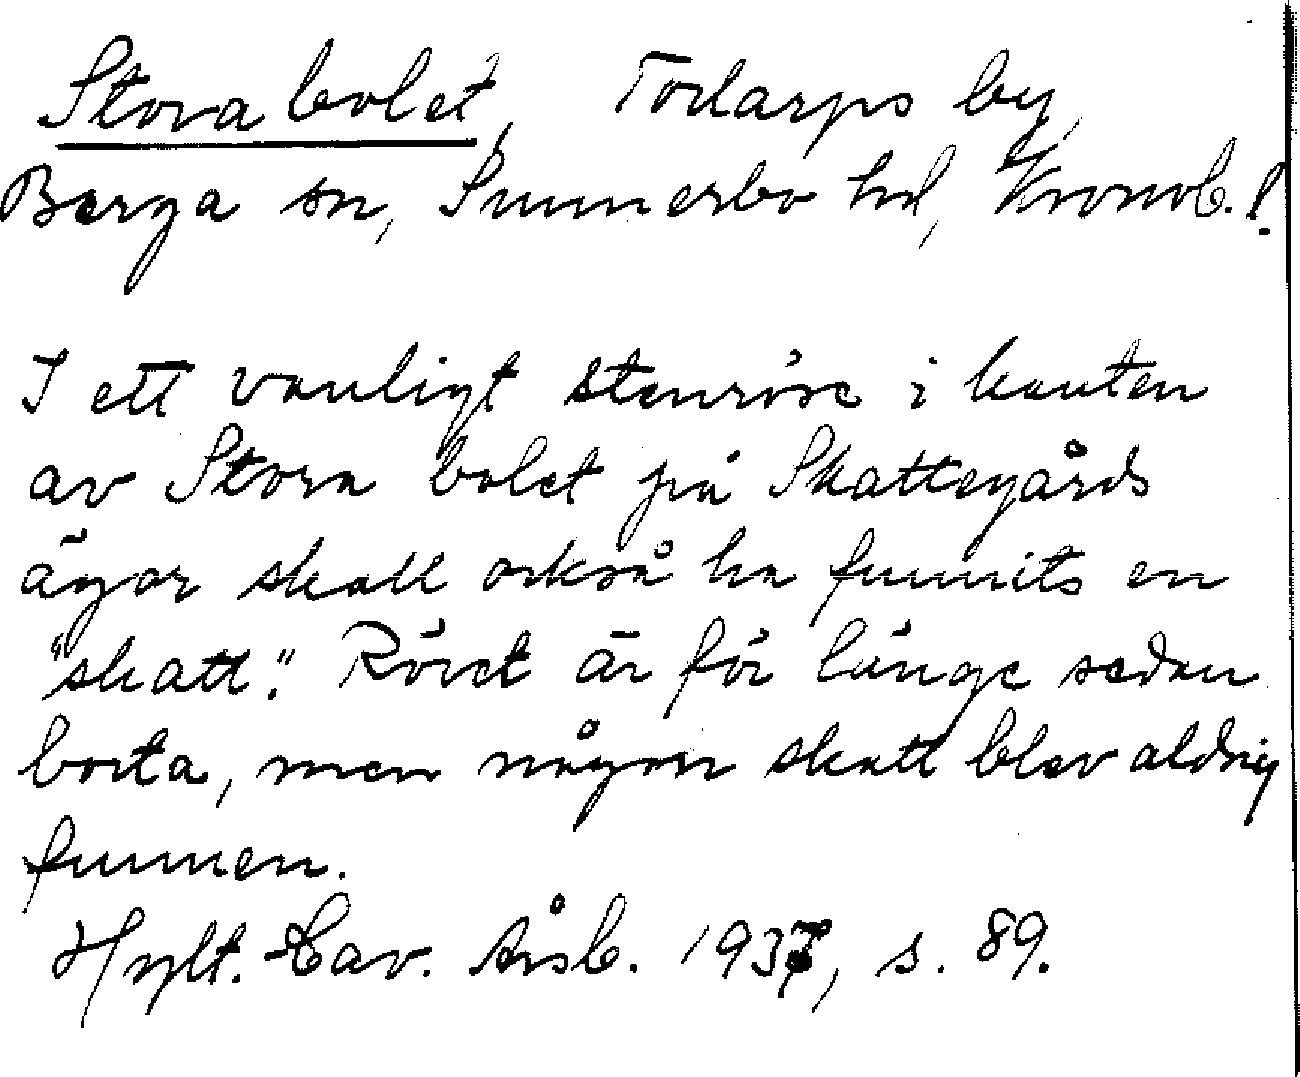 Stora bolet, Torlarps by,
Berga sn, Sunnerbo hd, Kronob. l.
I ett vanligt stenröse i kanten
av Stora bolet på Skattegårds
ägor skall också ha funnits en
"skatt". Röset är för länge sedan
borta, men någon skatt blev aldrig
funnen.
Hylt.-Cav. Årsb. 1937, s. 89.